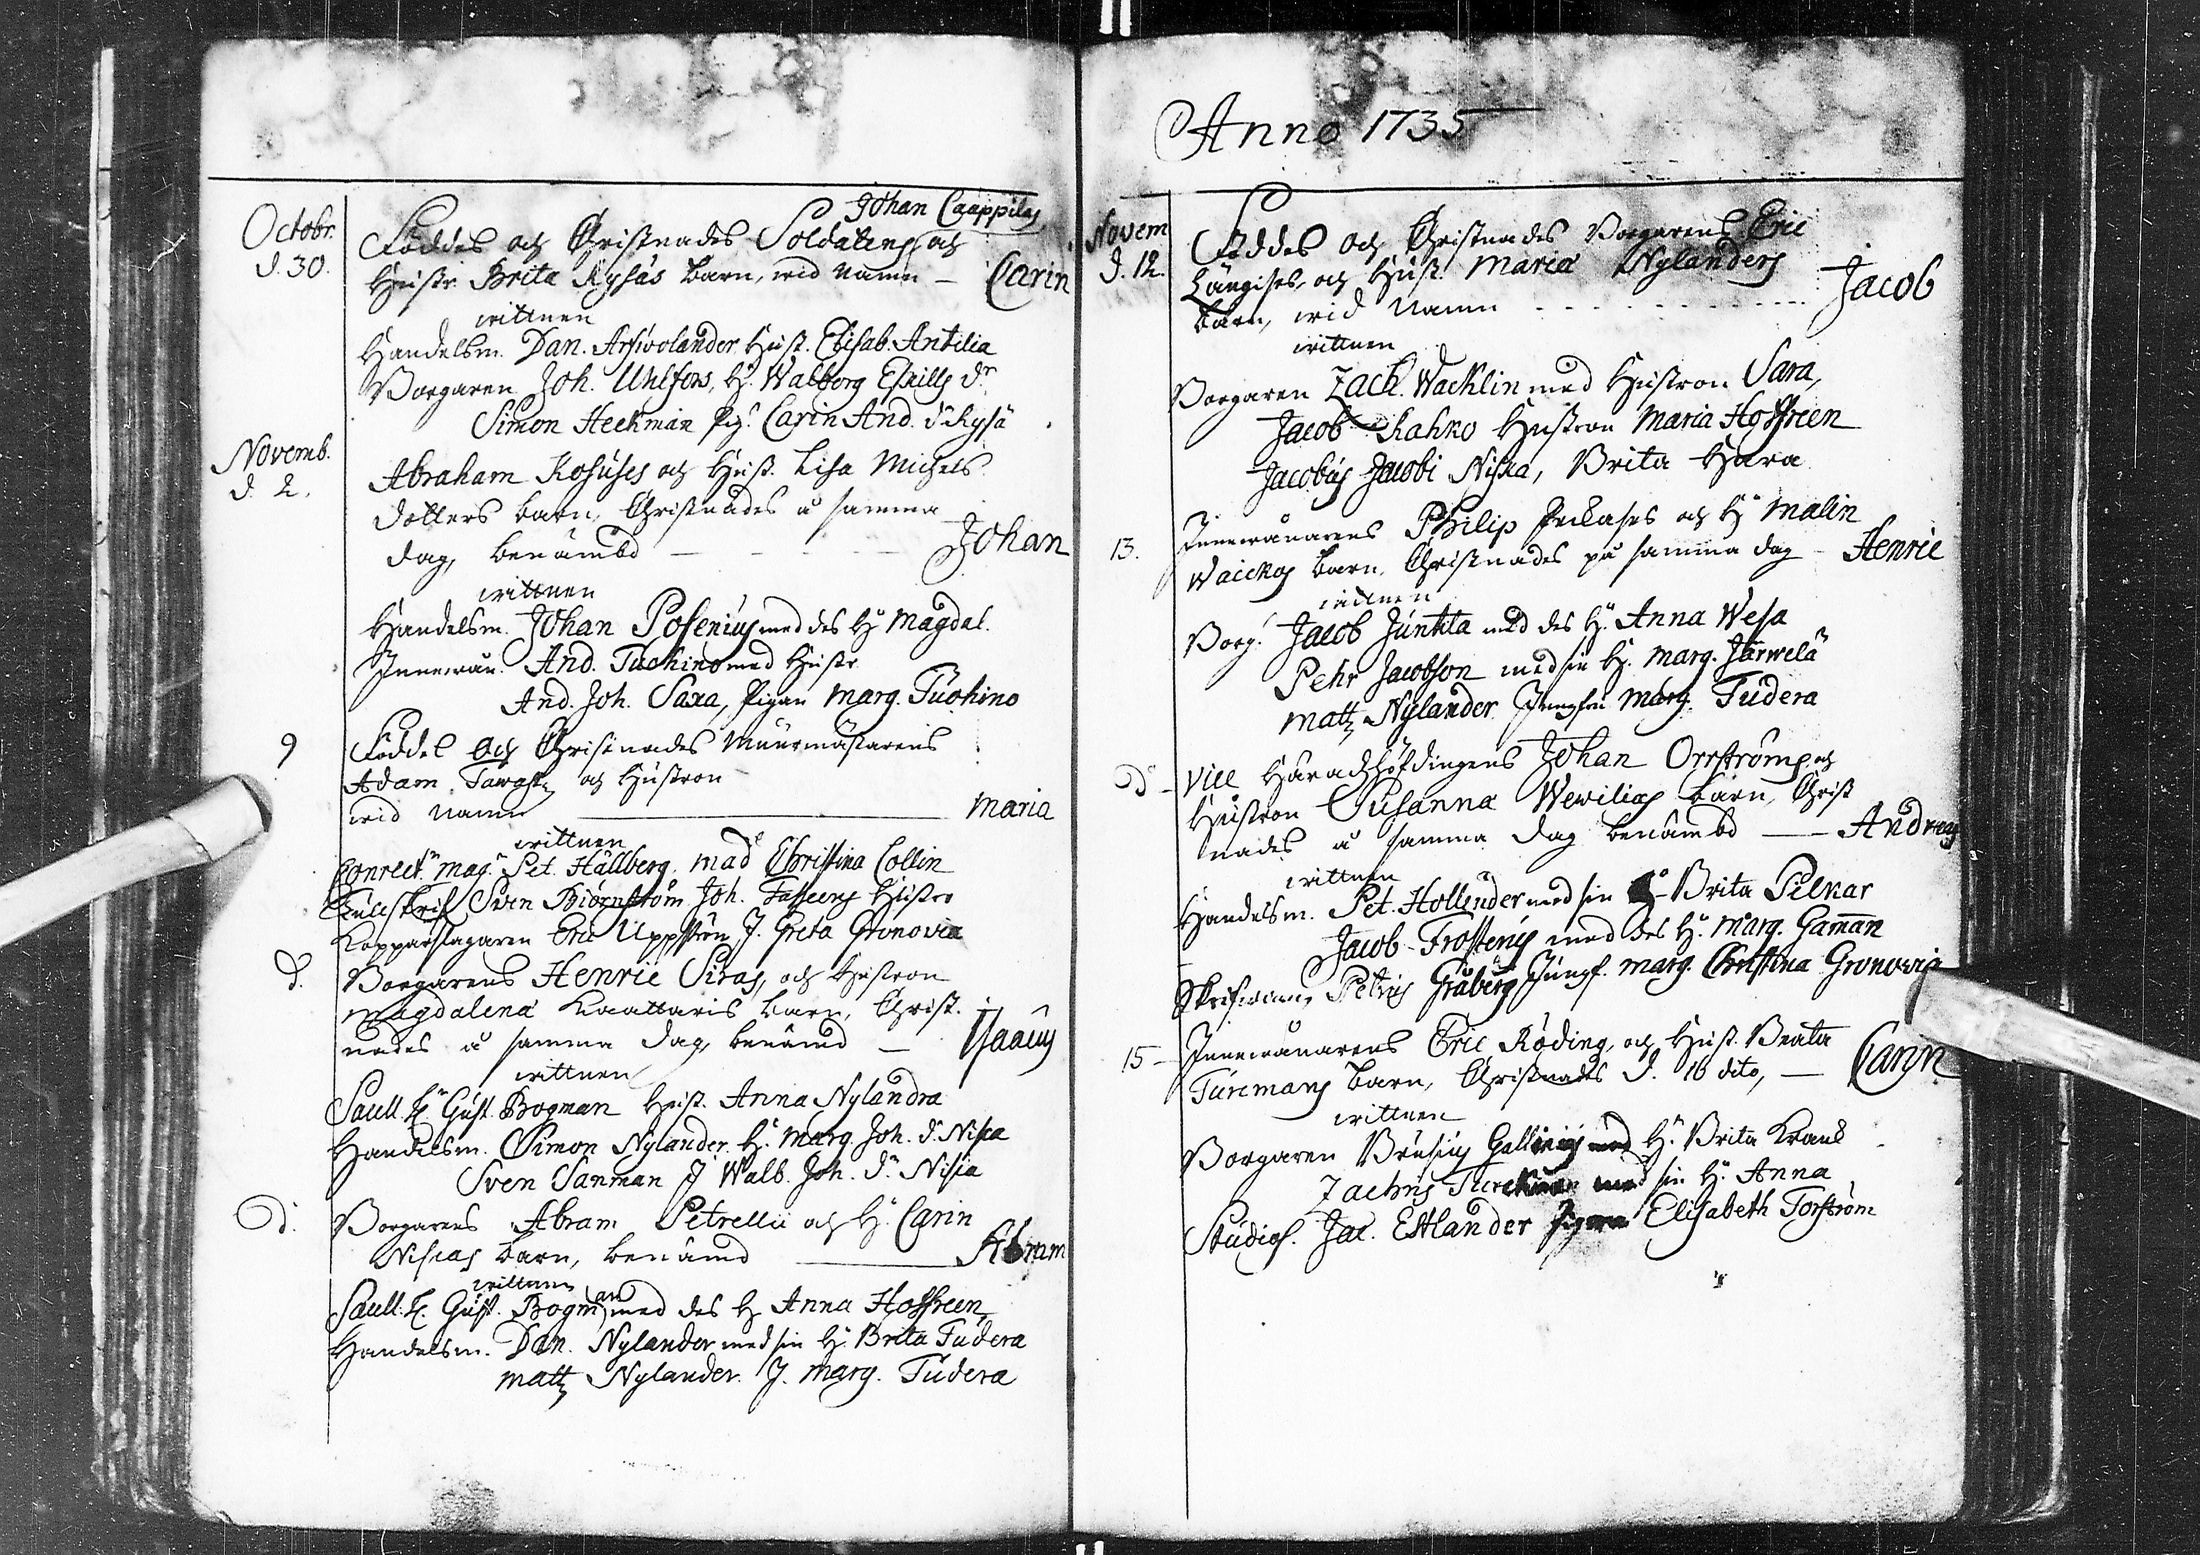 Octobr. d. 30.
Johan Caappilas
Föddes och Christnades Soldatens och
Hustr. Brita Kysäs barn, wid namn — Carin
wittnen
Handelsm. Dan. Arfwolander Hust. Elisab. Antilia
Borgaren Joh. Uhlfors, H. Walborg Eskills dr
Simon Heckman Pig. Carin And. dr Kysä
Novemb. d. 2.
Abraham Kosuses och Hust. Lisa Michels
dotters barn, Christnades å samma
dag, benämbd — Johan
wittnen
Handelsm. Johan Posenius med des H. Magdal.
Innewån. And. Tuohino med Hustr.
And. Joh. Saxa, Pigan Marg. Tuohino
9
Föddes och Christnades Muurmästarens
Adam Tawast och Hustron
wid namn — Maria
wittnen
Conrect. Mag. Pet. Hällberg, Mad Christina Collin
Tullskrif. Sven Biörnström Joh. Hustro
Kopparslagaren Eric Uppström J. Greta Gronovia
d.
Borgarens Henric Siras, och Hustron
Magdalena Kaattaris barn, Christ-
nades å samma dag, benämd — Isaacus
wittnen
Gust. Bogman Hust. Anna Nylandra
Handelsm. Simon Nylander H. Marg. Joh. dr Nisca
Sven Sanman J Walb. Joh. dr Nisca
d.
Borgarens Abram Petrellii och H. Carin
Niscas barn, benämd — Abram
wittnen
Gust. Bogman med des H Anna Hoffreen
Handelsm. Dan. Nylander med sin H. Brita Tudera
Matz Nylander. J. Marg. Tudera
Anno 1735
Novem d. 12.
Föddes och Christnades Borgarens Eric
Längises, och Hust. Maria Nylanders
barn, wid namn — Jacob
wittnen
Borgaren Zach. Wacklin med Hustron Sara,
Jacob Rahko Hustron Maria Hoffreen
Jacobus Jacobi Niska, Brita Hara
13.
Innewånarens Philip och H. Malin
Waickos barn, Christnades på samma dag — Henric
wittnen
Borg. Jacob Juntila med des H. Anna Wesa
Pehr Jacobson med sin H. Marg. Järwelä
Matz Nylander Jungfru Marg. Tudera
d
Vice Häradzhöfdingens Johan Orrströms och
Hustron Susanna Wewilias barn, Christ
nades å samma dag benämbd — Andreas
wittnen
Handelsm. Pet. Hollender med sin Brita Pelkar
Jacob Frosterus med des H. Marg. Gaman
Petrus Gråberg Jungf. Marg. Christina Gronovia
15
Innewånarens Eric Röding, och Hust. Beata
Turemans barn, Christnades d. 16 dito, — Carin
wittnen
Borgaren Brusius Gallenius med H. Brita Krank
Zachris med sin H. Anna
Studios. Jac. Estlander Pigan Elisabeth Torström